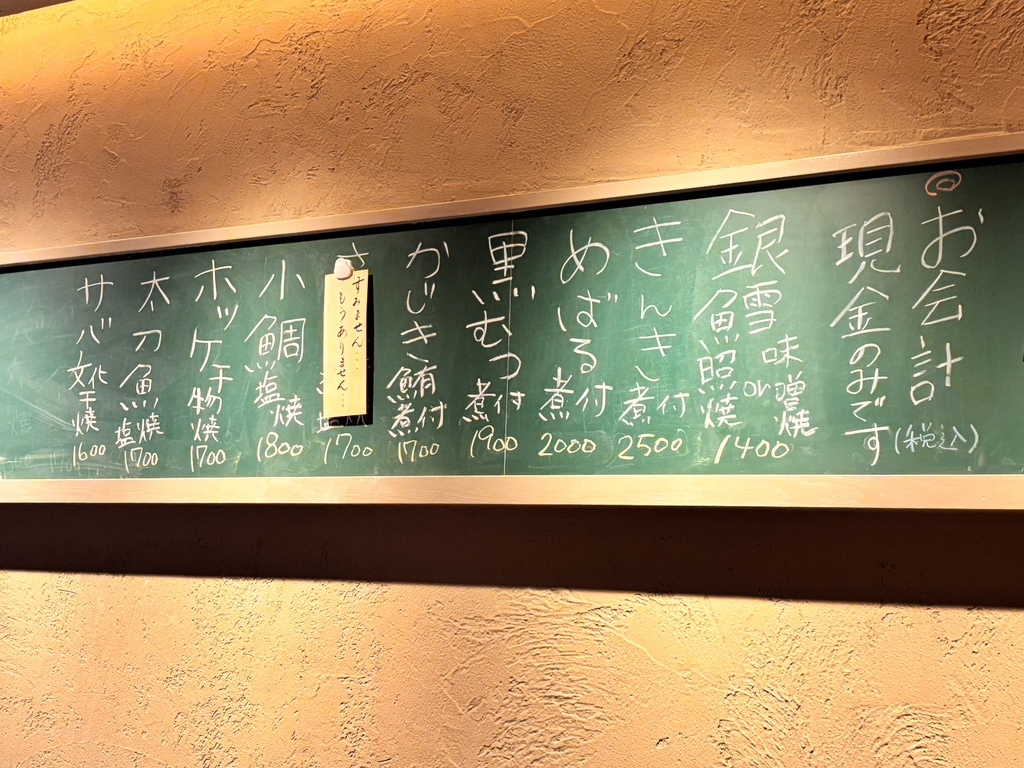 お会計
現金のみです
(税込)
銀雪魚照焼or味噌焼
1400
きんき煮付
2500
めばる煮付
2000
黒むつ煮付
1900
かじき鮪煮付
1700
すみません…
もうありません…
1700
小鯛塩焼
1800
ホッケ干物焼
1700
太刀魚塩焼
1700
サバ文化干焼
1600